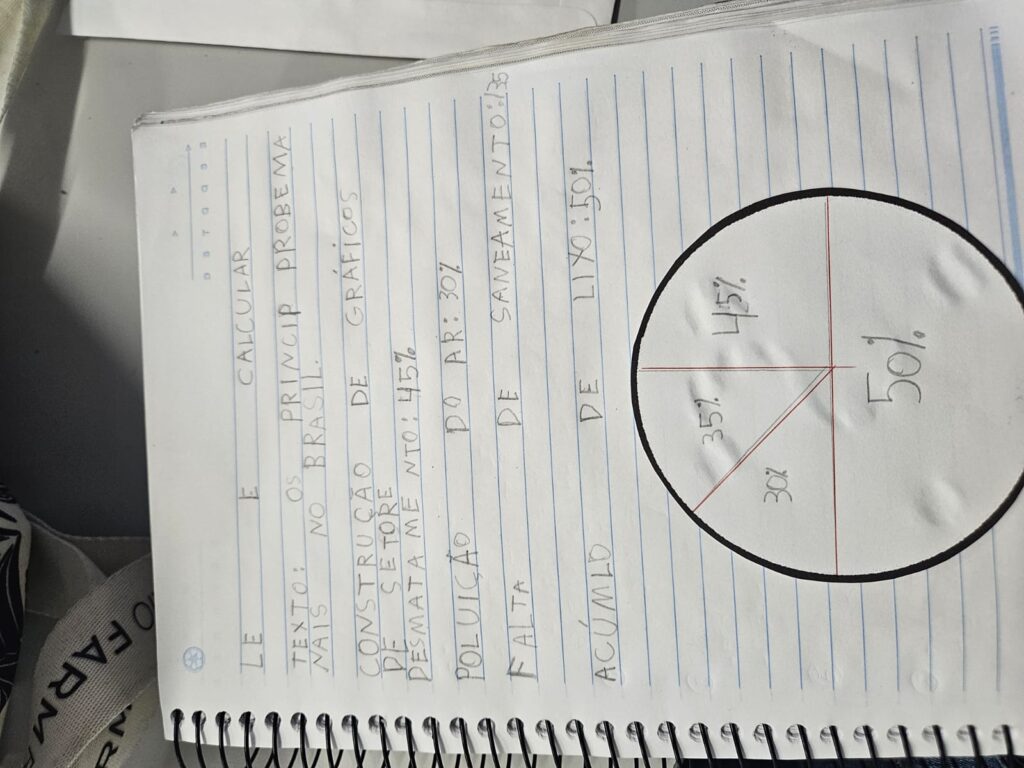 LE E CALCULAR
TEXTO: OS PRINCIP PROBEMA
NAIS NO BRASIL.
CONSTRUÇÃO DE GRÁFICOS
DE SETORE
DESMATAMENTO: 45%
POLUIÇÃO DO AR: 30%
FALTA DE SANEAMENTO: 135
ACÚMLO DE LIXO: 50%
35% 45%
30%
50%
FARMA